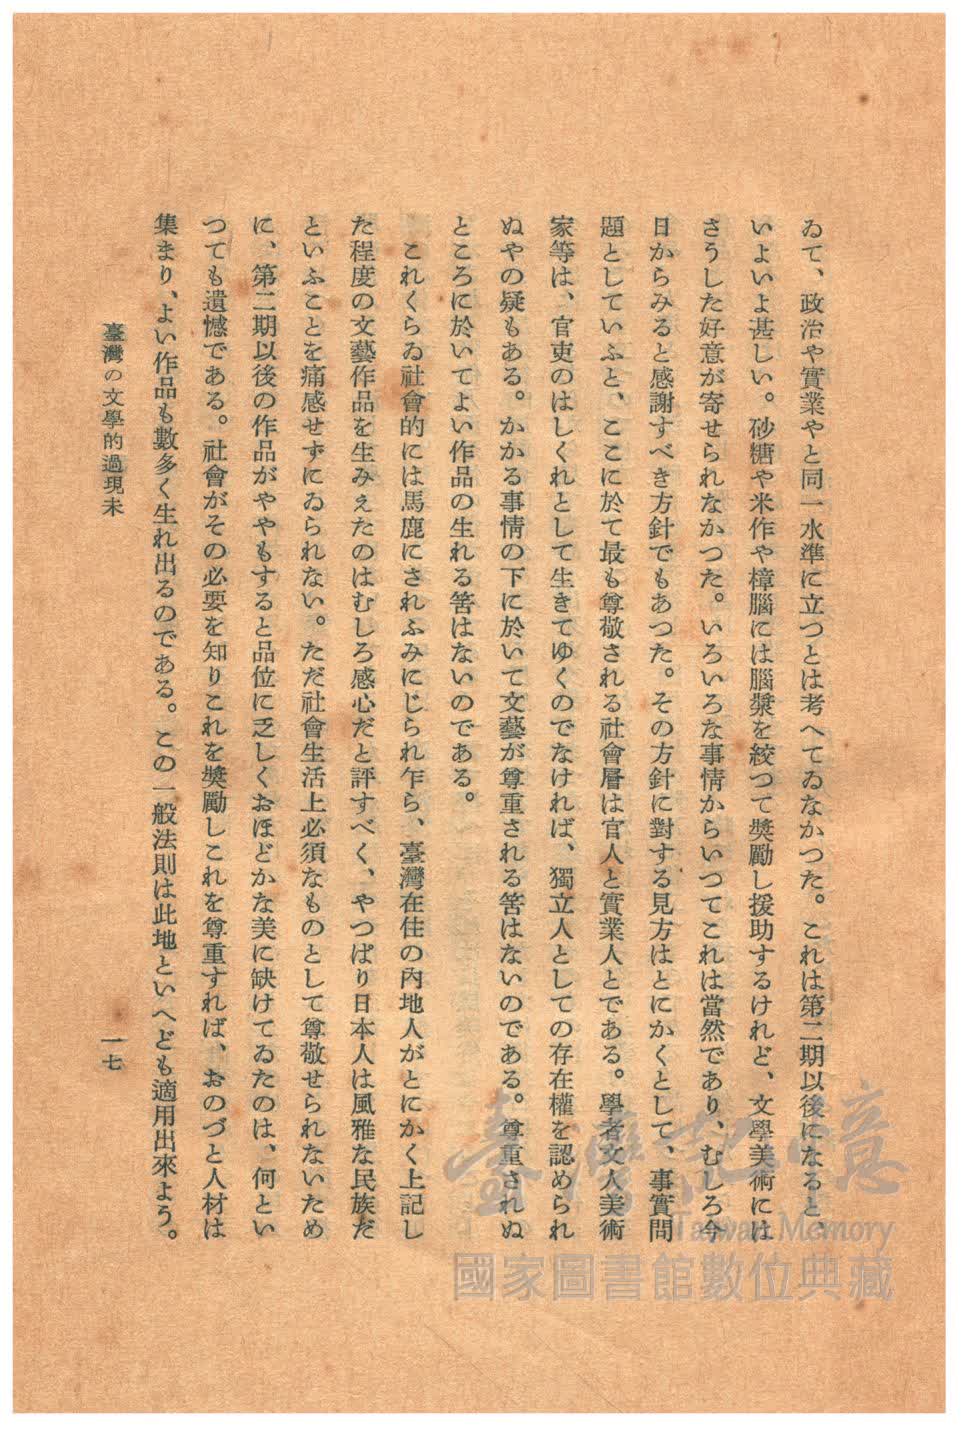 ゐて、政治や實業やと同一水準に立つとは考へてゐなかつた。これは第二期以後になると、
いよいよ甚しい。砂糖や米作や樟腦には腦漿を絞つて奬勵し援助するけれど、文學美術には
さうした好意が寄せられなかつた。いろいろな事情からいつてこれは當然であり、むしろ今
日からみると感謝すべき方針でもあつた。その方針に對する見方はとにかくとして、事實問
題としていふと、ここに於て最も尊敬される社會層は官人と實業人とである。學者文人美術
家等は、官吏のはしくれとして生きてゆくのでなければ、獨立人としての存在權を認められ
ぬやの疑もある。かかる事情の下に於いて文藝が尊重される筈はないのである。尊重されぬ
ところに於いてよい作品の生れる筈はないのである。
これくらゐ社會的には馬鹿にされふみにじられ乍ら、臺灣在住の內地人がとにかく上記し
た程度の文藝作品を生みえたのはむしろ感心だと評すべく、やつぱり日本人は風雅な民族だ
といふことを痛感せずにゐられない。ただ社會生活上必須なものとして尊敬せられないため
に、第二期以後の作品がややもすると品位に乏しくおほどかな美に缺けてゐたのは、何とい
つても遺憾である。社會がその必要を知りこれを奬勵しこれを尊重すれば、おのづと人材は
集まり、よい作品も數多く生れ出るのである。この一般法則は此地といへども適用出來よう。
臺灣の文學的過現未
一七
臺灣記憶
Taiwan Memory
國家圖書館數位典藏